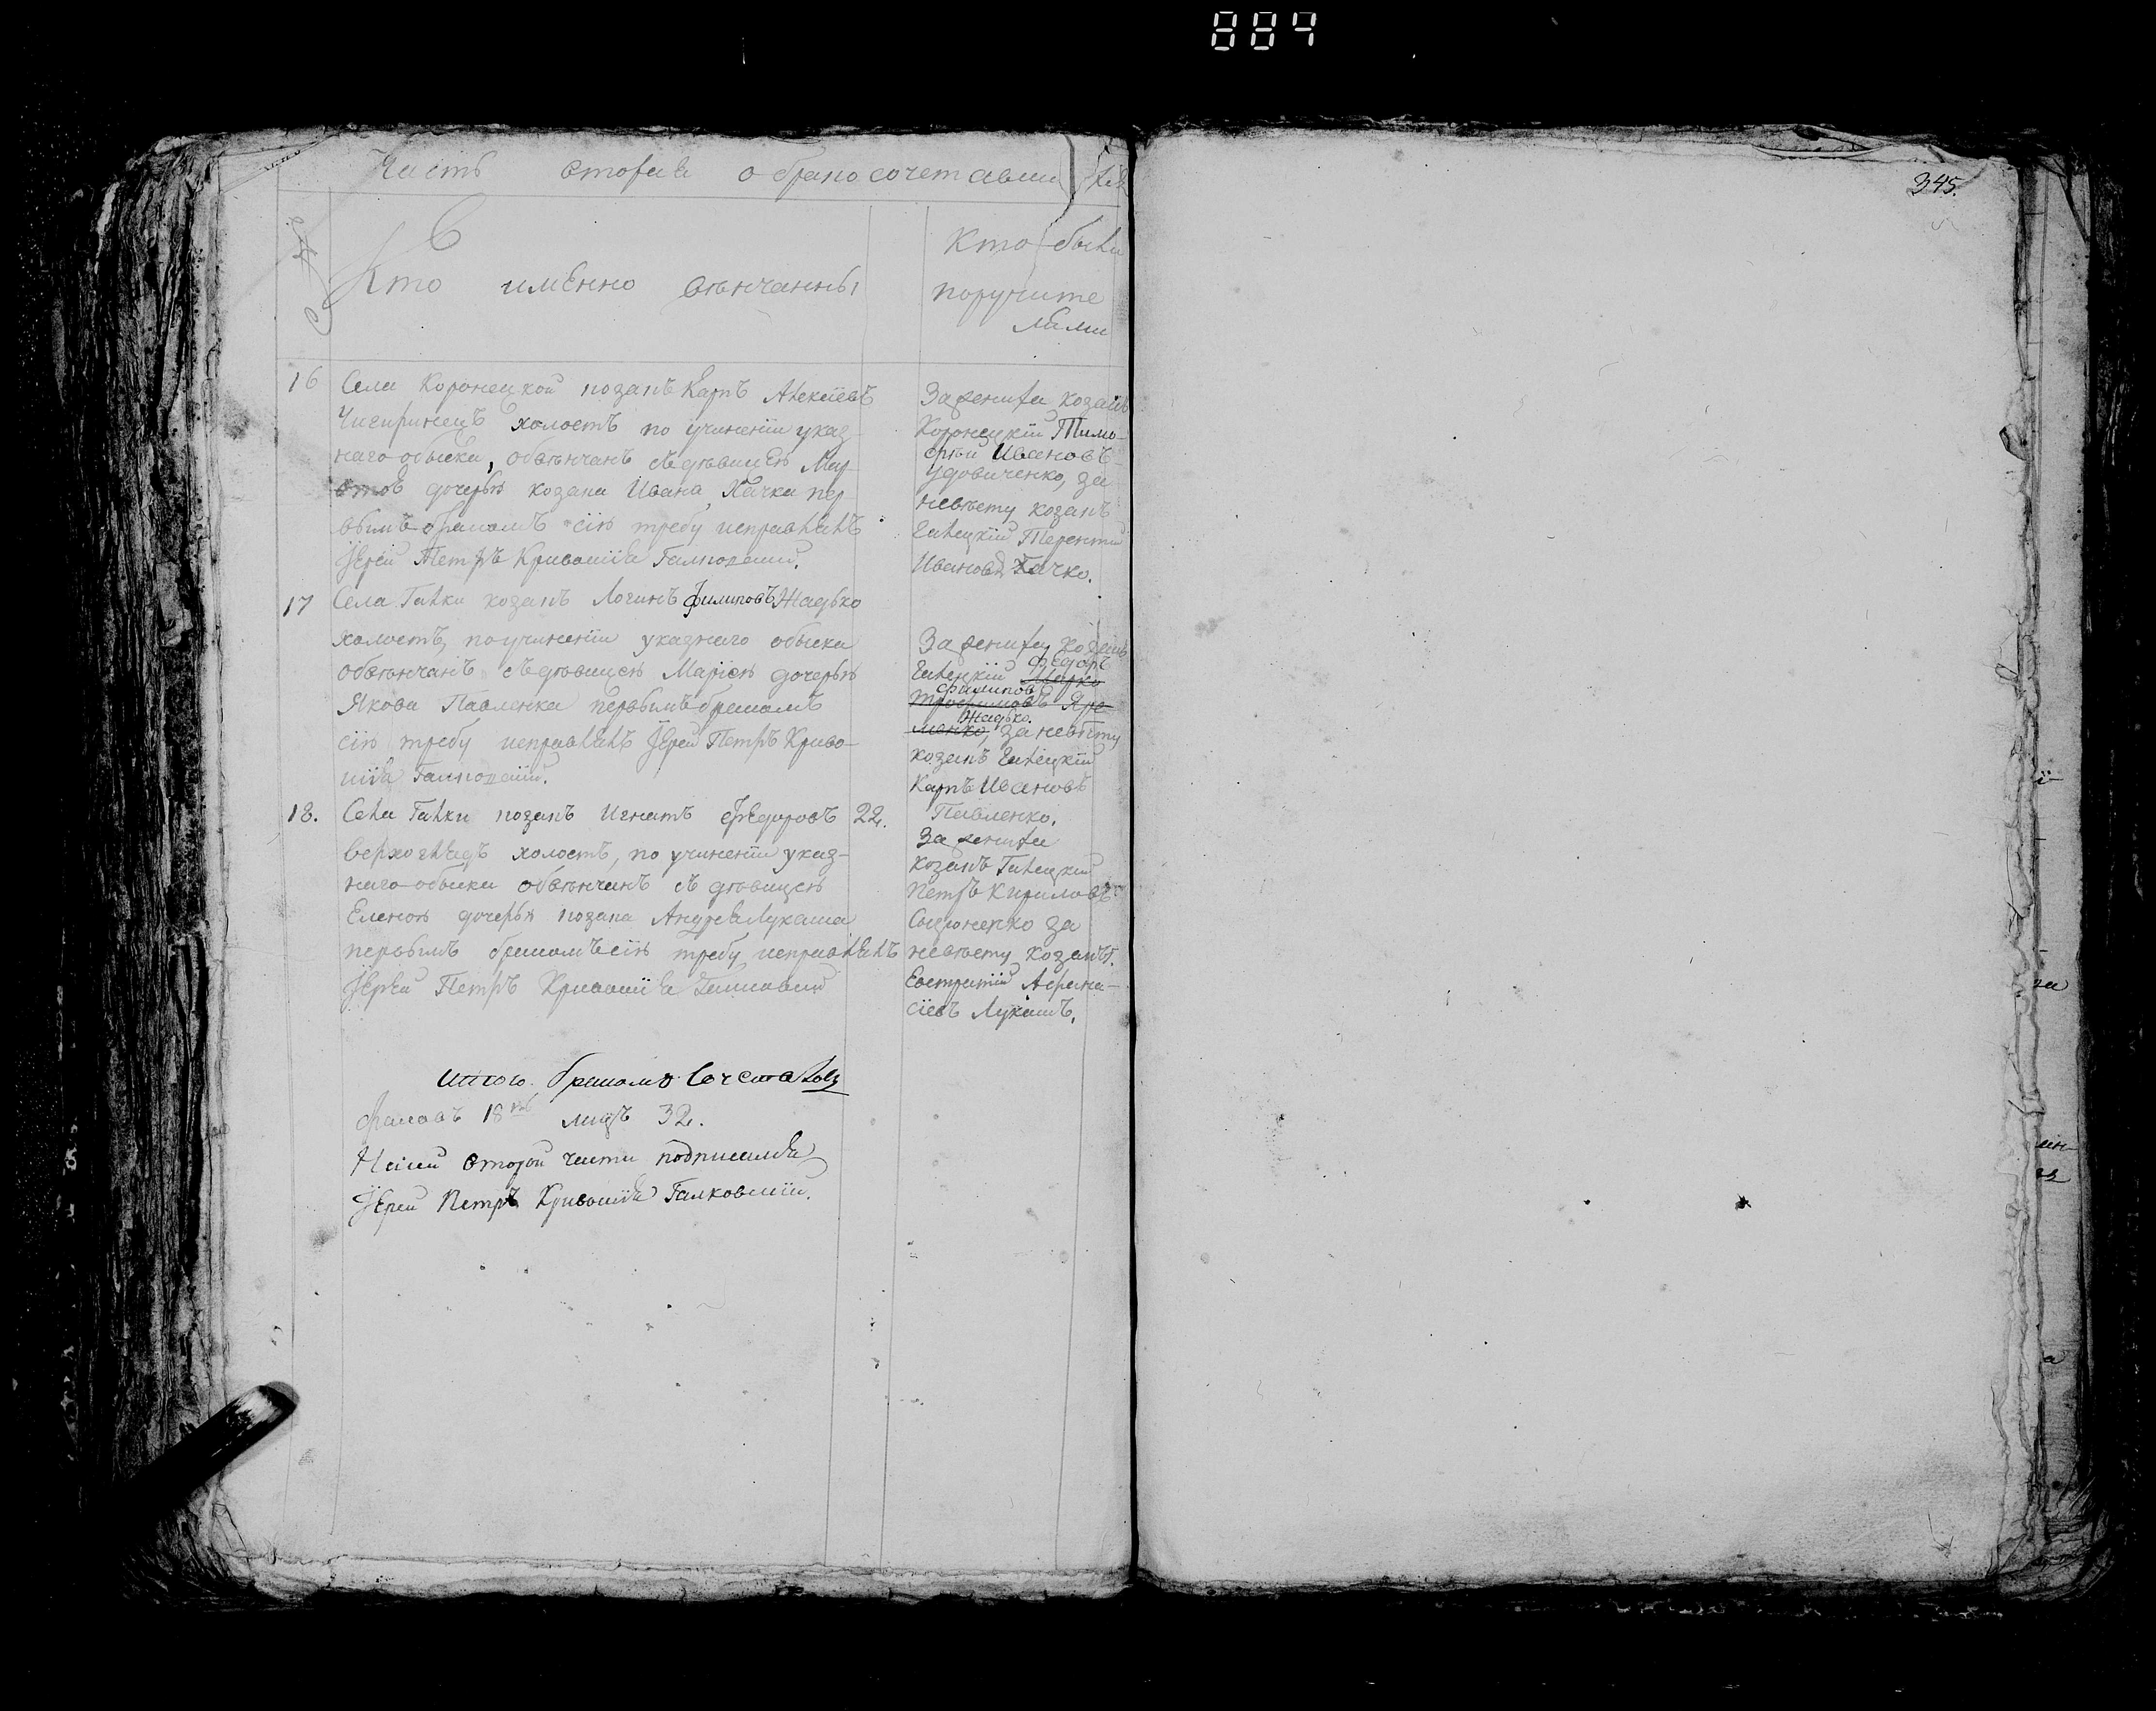 884
345.
Часть вторая о браносочетавши
Кто именно вѣнчанны
Кто были
поручите
лями
16 Села Коронецкой козакъ Карпъ Алексіевъ
Чигиринецъ холостъ по учиненіи указ-
наго обыска, обвѣнчанъ съ дѣвицею
дочерью козака Ивана Хачка пер-
вымъ бракомъ сію требу исправлялъ
Іерей Петръ Кривошія Галковскій.
За жениха козакъ
Коронецкій Тимо-
фѣй Ивановъ
Удовиченко, за
невѣсту козакъ
Галецкій Терентій
Ивановъ Хачко.
17 Села Галки козакъ Логинъ Филиповъ Жадько
холостъ, по учиненіи указнаго обыска
обвѣнчанъ съ дѣвицею Маріею дочерью
Якова Павленка первымъ бракомъ
сію требу исправлялъ Іерей Петръ Криво-
шія Галковскій.
За жениха козакъ
Федоръ
Галецкій Марко
Филиповъ
Трофимовъ Яре-
Жадько.
менко, за невѣсту
козакъ Галецкій
Карпъ Ивановъ
Павленко.
18. Села Галки козакъ Игнатъ Федоровъ 22.
Верхоглядъ холостъ, по учиненіи указ-
наго обыска обвѣнчанъ съ дѣвицею
Еленою дочерью козака Андрея Лукаша
первымъ бракомъ сію требу исправлялъ
Іерей Петръ Кривошія Галковскій
За жениха
козакъ Галецкій
Петръ Кириловъ
Сызоненко за
невѣсту козакъ
Евстратій Афана-
сіевъ Лукашъ.
Итого бракомъ сочеталось
браковъ 18 лицъ 32.
Къ сей второй части подписался
Іерей Петръ Кривошія Галковскій.